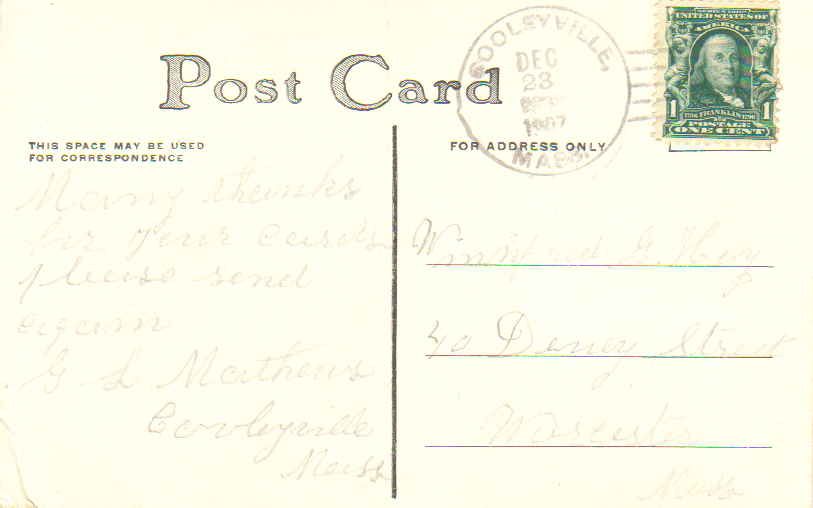 Post Card
COOLEYVILLE,
DEC
23
1907
MASS.
UNITED STATES OF
AMERICA
1 1706 FRANKLIN 1790 1
POSTAGE
ONE CENT
THIS SPACE MAY BE USED
FOR CORRESPONDENCE
FOR ADDRESS ONLY
Many thanks
for your cards
please send
again
G L Mathews
Cooleyville
Mass
Winifred G.
40 Street
Worcester
Mass